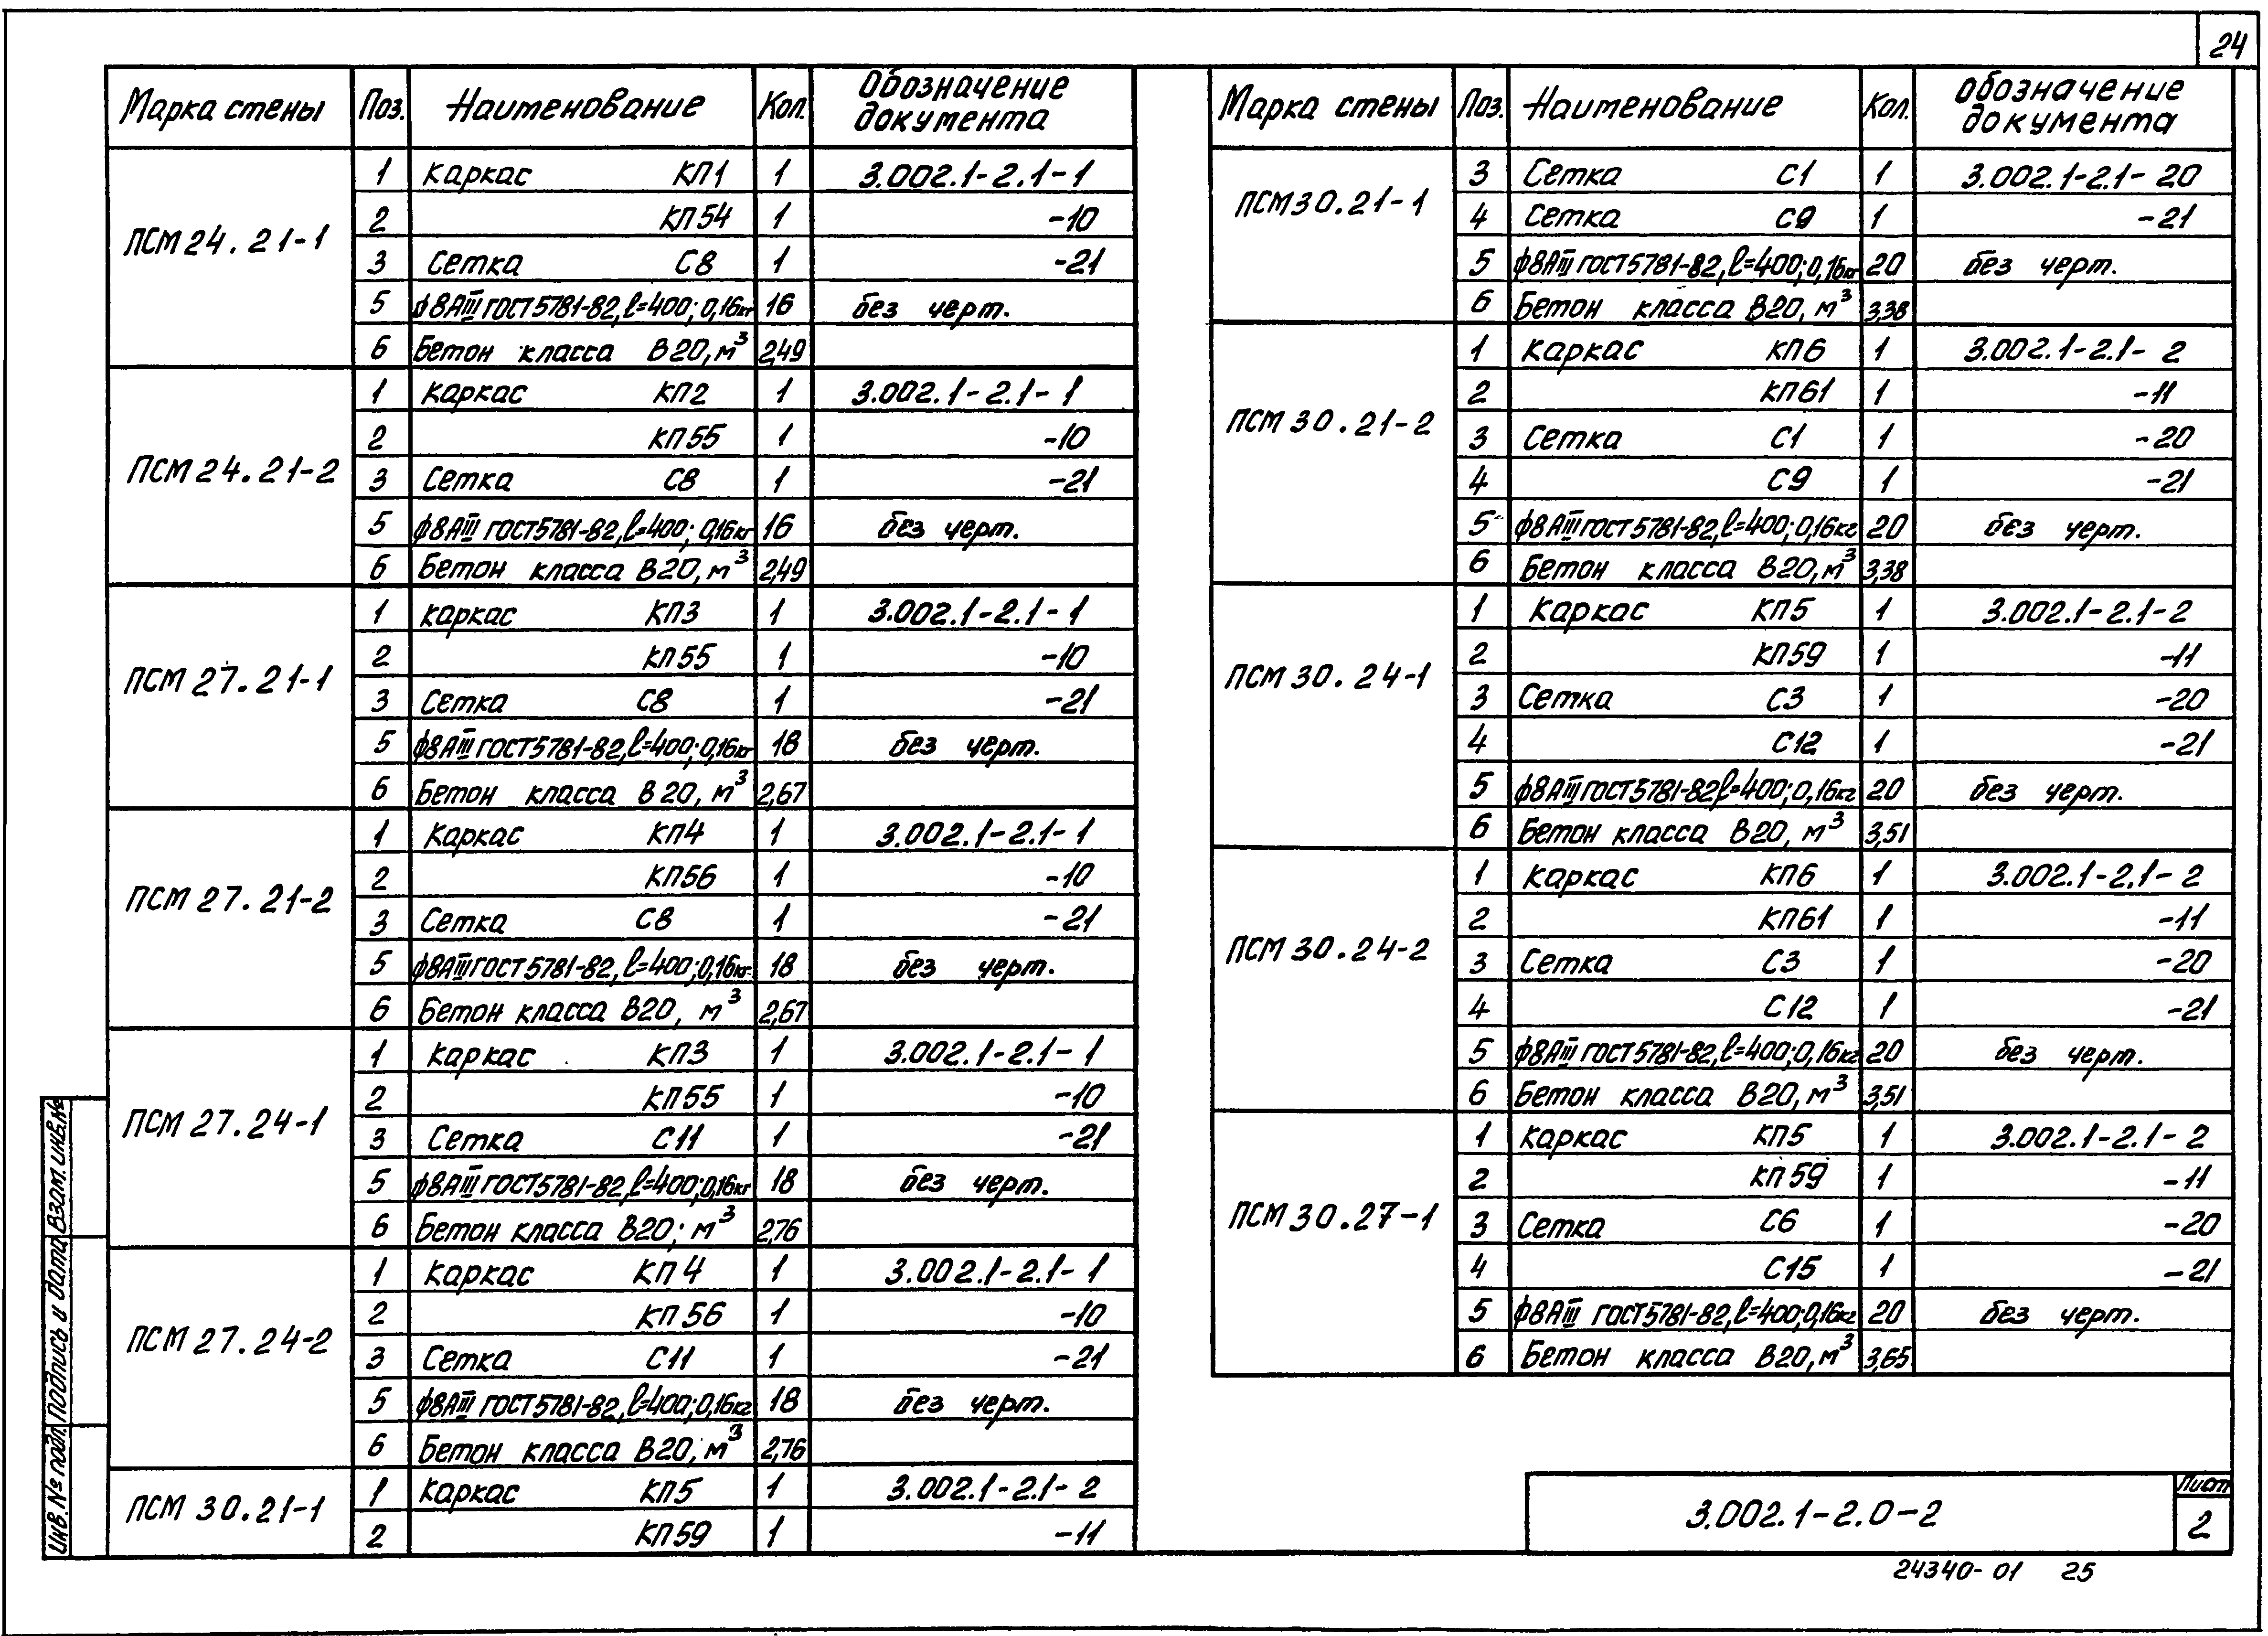 24
Марка стены Поз. Наименование Кол. Обозначение документа
ПСМ 24.21-1
1 Каркас КП1 1 3.002.1-2.1-1
2 КП54 1 -10
3 Сетка С8 1 -21
5 ф8АIII ГОСТ5781-82, l=400; 0,16кг 16 без черт.
6 Бетон класса В20, м³ 2,49
ПСМ 24.21-2
1 Каркас КП2 1 3.002.1-2.1-1
2 КП55 1 -10
3 Сетка С8 1 -21
5 ф8АIII ГОСТ5781-82, l=400; 0,16кг 16 без черт.
6 Бетон класса В20, м³ 2,49
ПСМ 27.21-1
1 Каркас КП3 1 3.002.1-2.1-1
2 КП55 1 -10
3 Сетка С8 1 -21
5 ф8АIII ГОСТ5781-82, l=400; 0,16кг 18 без черт.
6 Бетон класса В20, м³ 2,67
ПСМ 27.21-2
1 Каркас КП4 1 3.002.1-2.1-1
2 КП56 1 -10
3 Сетка С8 1 -21
5 ф8АIII ГОСТ5781-82, l=400; 0,16кг 18 без черт.
6 Бетон класса В20, м³ 2,67
ПСМ 27.24-1
1 Каркас КП3 1 3.002.1-2.1-1
2 КП55 1 -10
3 Сетка С11 1 -21
5 ф8АIII ГОСТ5781-82, l=400; 0,16кг 18 без черт.
6 Бетон класса В20; м³ 2,76
ПСМ 27.24-2
1 Каркас КП4 1 3.002.1-2.1-1
2 КП56 1 -10
3 Сетка С11 1 -21
5 ф8АIII ГОСТ5781-82, l=400; 0,16кг 18 без черт.
6 Бетон класса В20, м³ 2,76
ПСМ 30.21-1
1 Каркас КП5 1 3.002.1-2.1-2
2 КП59 1 -11
Марка стены Поз. Наименование Кол. Обозначение документа
ПСМ 30.21-1
3 Сетка С1 1 3.002.1-2.1-20
4 Сетка С9 1 -21
5 ф8АIII ГОСТ5781-82, l=400; 0,16кг 20 без черт.
6 Бетон класса В20, м³ 3,38
ПСМ 30.21-2
1 Каркас КП6 1 3.002.1-2.1-2
2 КП61 1 -11
3 Сетка С1 1 -20
4 С9 1 -21
5 ф8АIII ГОСТ5781-82, l=400; 0,16кг 20 без черт.
6 Бетон класса В20, м³ 3,38
ПСМ 30.24-1
1 Каркас КП5 1 3.002.1-2.1-2
2 КП59 1 -11
3 Сетка С3 1 -20
4 С12 1 -21
5 ф8АIII ГОСТ5781-82, l=400; 0,16кг 20 без черт.
6 Бетон класса В20, м³ 3,51
ПСМ 30.24-2
1 Каркас КП6 1 3.002.1-2.1-2
2 КП61 1 -11
3 Сетка С3 1 -20
4 С12 1 -21
5 ф8АIII ГОСТ5781-82, l=400; 0,16кг 20 без черт.
6 Бетон класса В20, м³ 3,51
ПСМ 30.27-1
1 Каркас КП5 1 3.002.1-2.1-2
2 КП59 1 -11
3 Сетка С6 1 -20
4 С15 1 -21
5 ф8АIII ГОСТ5781-82, l=400; 0,16кг 20 без черт.
6 Бетон класса В20, м³ 3,65
Инв. № подл. Подпись и дата Взам. инв. №
3.002.1-2.0-2
Лист
2
24340-01 25